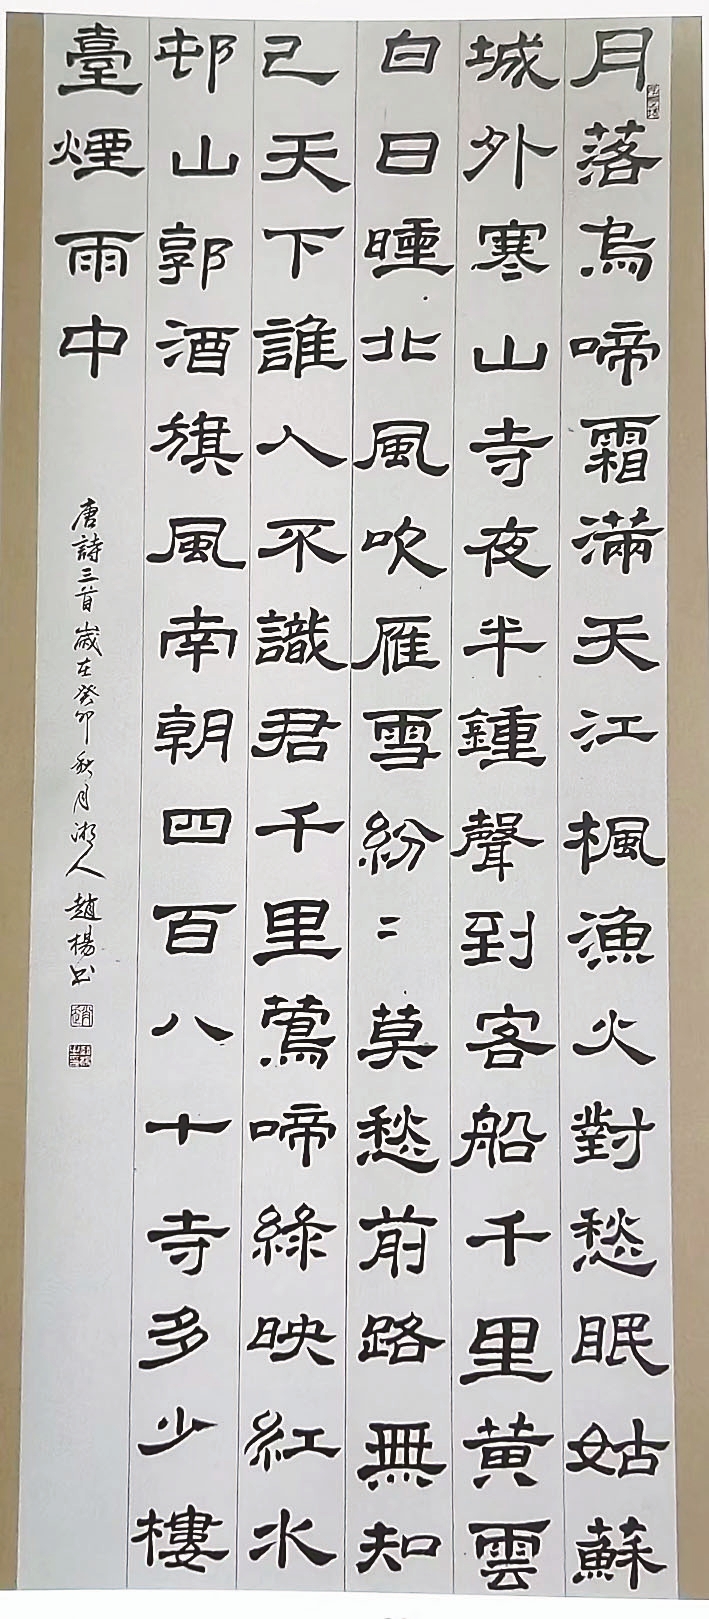 月落烏啼霜滿天江楓漁火對愁眠姑蘇
城外寒山寺夜半鍾聲到客船千里黄雲
白日曛北風吹雁雪紛〻莫愁前路無知
己天下誰人不識君千里鶯啼綠映紅水
邨山郭酒旗風南朝四百八十寺多少樓
臺煙雨中
唐詩三首歲在癸卯秋月湘人趙楊書